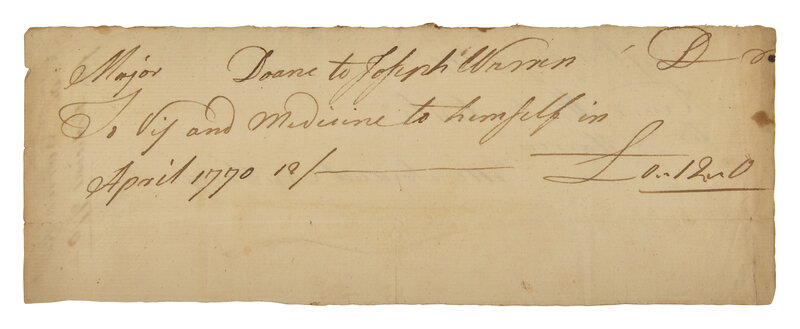 Major Doane to Joseph Warren Dr
To Vis and Medicine to himself in
April 1770 12/ — £0..12..0